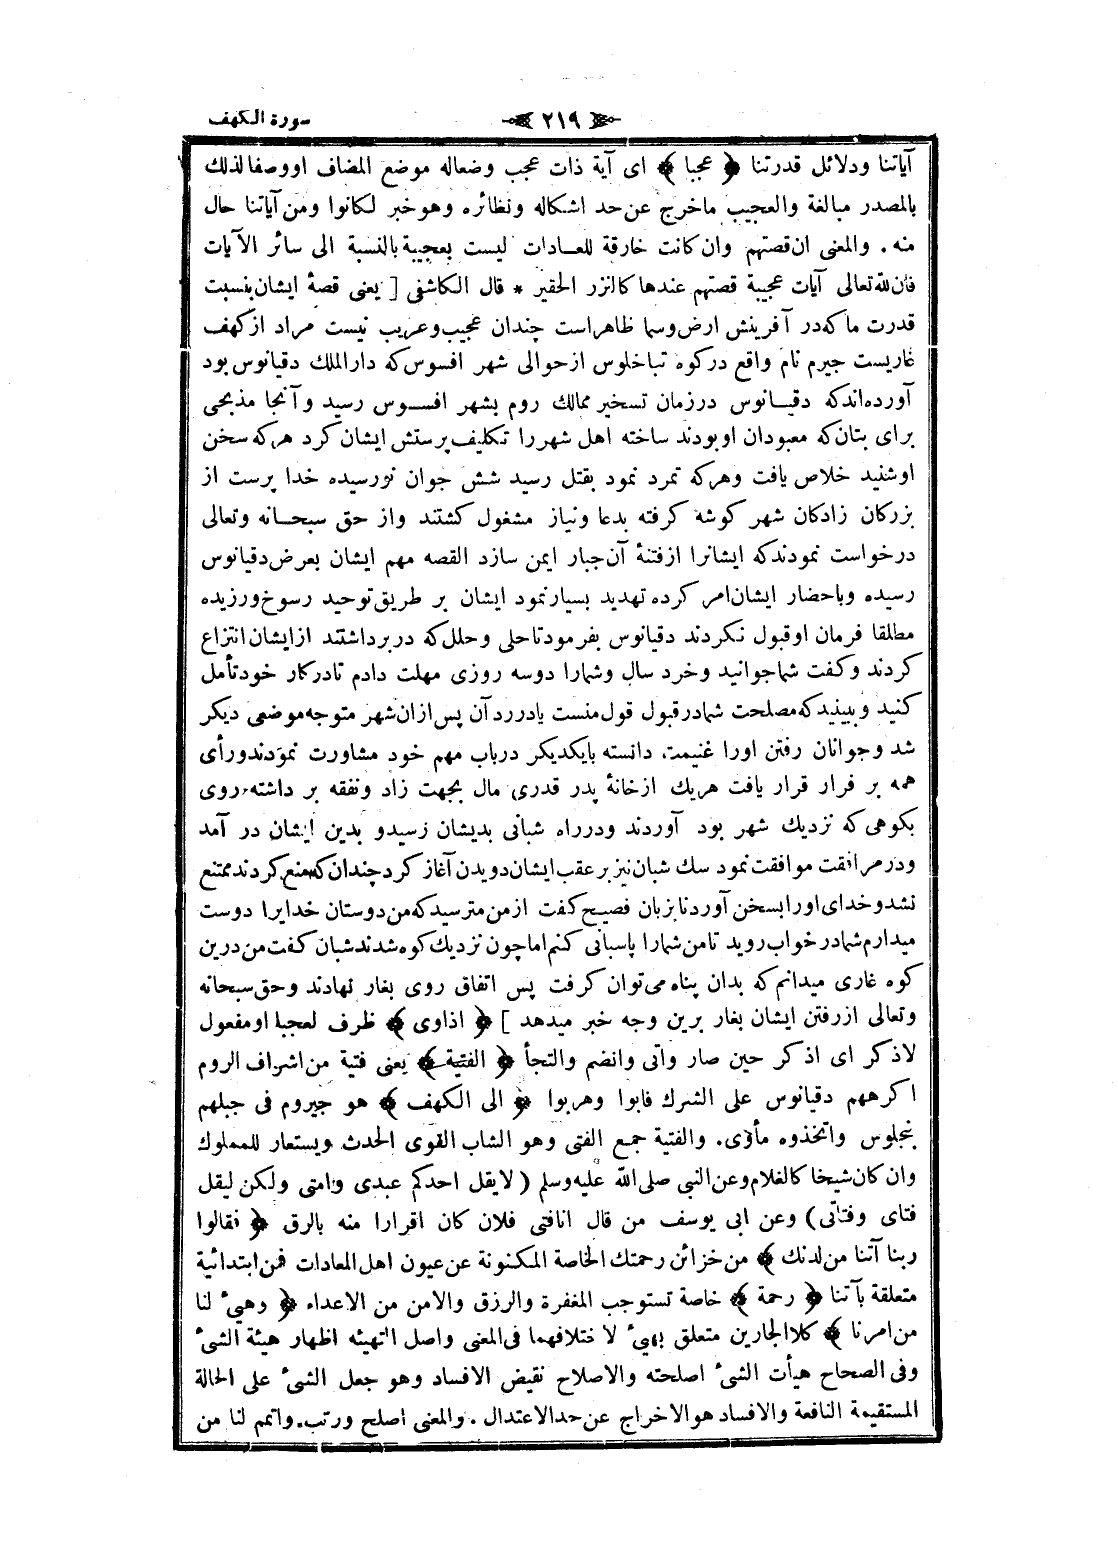 سورة الكهف ٢١٩
آياتنا ودلائل قدرتنا ﴿ عجبا ﴾ اى آية ذات عجب وضعاله موضع المضاف اووصفا لذلك
بالمصدر مبالغة والعجيب ماخرج عن حد اشكاله ونظائره وهو خبر لكانوا ومن آياتنا حال
منه . والمعنى ان قصتهم وان كانت خارقة للعادات ليست بعجيبة بالنسبة الى سائر الآيات
فان لله تعالى آيات عجيبة قصتهم عندها كالنزر الحقير * قال الكاشفى [ يعنى قصهٔ ايشان بنسبت
قدرت ما كه در آفرينش ارض وسما ظاهراست چندان عجيب وغريب نيست مراد از كهف
غاريست جيرم نام واقع دركوه تباخلوس ازحوالى شهر افسوس كه دارالملك دقيانوس بود
آورده اند كه دقيانوس درزمان تسخير ممالك روم بشهر افسوس رسيد وآنجا مذبحى
براى بتان كه معبودان اوبودند ساخته اهل شهررا تكليف پرستش ايشان كرد هركه سخن
اوشنيد خلاص يافت وهركه تمرد نمود بقتل رسيد شش جوان نورسيده خدا پرست از
بزركان زادكان شهر كوشه كرفته بدعا ونياز مشغول كشتند واز حق سبحانه وتعالى
درخواست نمودند كه ايشانرا ازفتنهٔ آن جبار ايمن سازد القصه مهم ايشان بعرض دقيانوس
رسيده وباحضار ايشان امر كرده تهديد بسيار نمود ايشان بر طريق توحيد رسوخ ورزيده
مطلقا فرمان اوقبول نكردند دقيانوس بفرمود تاحلى وحلل كه دربرداشتند ازايشان انتزاع
كردند وكفت شماجوانيد وخرد سال وشمارا دوسه روزى مهلت دادم تادركار خودتأمل
كنيد وببينيد كه مصلحت شمادر قبول قول منست يادررد آن پس ازان شهر متوجه موضعى ديكر
شد وجوانان رفتن اورا غنيمت دانسته بايكديكر درباب مهم خود مشاورت نمودند ورأى
همه بر فرار قرار يافت هريك ازخانهٔ پدر قدرى مال بجهت زاد ونفقه بر داشته روى
بكوهى كه نزديك شهر بود آوردند ودرراه شبانى بديشان رسيدو بدين ايشان در آمد
ودرمرافقت موافقت نمود سك شبان نيز بر عقب ايشان دويدن آغاز كرد چندان كه منع كردند ممتنع
نشد وخداى اورا بسخن آورد تا بزبان فصيح كفت از من مترسيد كه من دوستان خدايرا دوست
ميدارم شمادر خواب رويد تا من شمارا پاسبانى كنم اماچون نزديك كوه شدند شبان كفت من درين
كوه غارى ميدانم كه بدان پناه مى توان كرفت پس اتفاق روى بغار نهادند وحق سبحانه
وتعالى ازرفتن ايشان بغار برين وجه خبر ميدهد ] ﴿ اذاوى ﴾ ظرف لعجبا اومفعول
لاذكر اى اذكر حين صار واتى وانضم والتجأ ﴿ الفتية ﴾ يعنى فتية من اشراف الروم
اكرههم دقيانوس على الشرك فابوا وهربوا ﴿ الى الكهف ﴾ هو جيروم فى جبلهم
بنجلوس واتخذوه مأوى . والفتية جمع الفتى وهو الشاب القوى الحدث ويستعار للمملوك
وان كان شيخا كالغلام وعن النبى صلى الله عليه وسلم ( لايقل احدكم عبدى وامتى ولكن ليقل
فتاى وفتاتى ) وعن ابى يوسف من قال انافتى فلان كان اقرارا منه بالرق ﴿ فقالوا
ربنا آتنا من لدنك ﴾ من خزائن رحمتك الخاصة المكنونة عن عيون اهل المعادات فمن ابتدائية
متعلقة بآتنا ﴿ رحمة ﴾ خاصة تستوجب المغفرة والرزق والامن من الاعداء ﴿ وهيئ لنا
من امرنا ﴾ كلا الجارين متعلق بهيئ لا ختلافهما فى المعنى واصل التهيئه اظهار هيئة الشئ
وفى الصحاح هيأت الشئ اصلحته والاصلاح نقيض الافساد وهو جعل الشئ على الحالة
المستقيمة النافعة والافساد هو الاخراج عن حد الاعتدال . والمعنى اصلح ورتب . واتمم لنا من